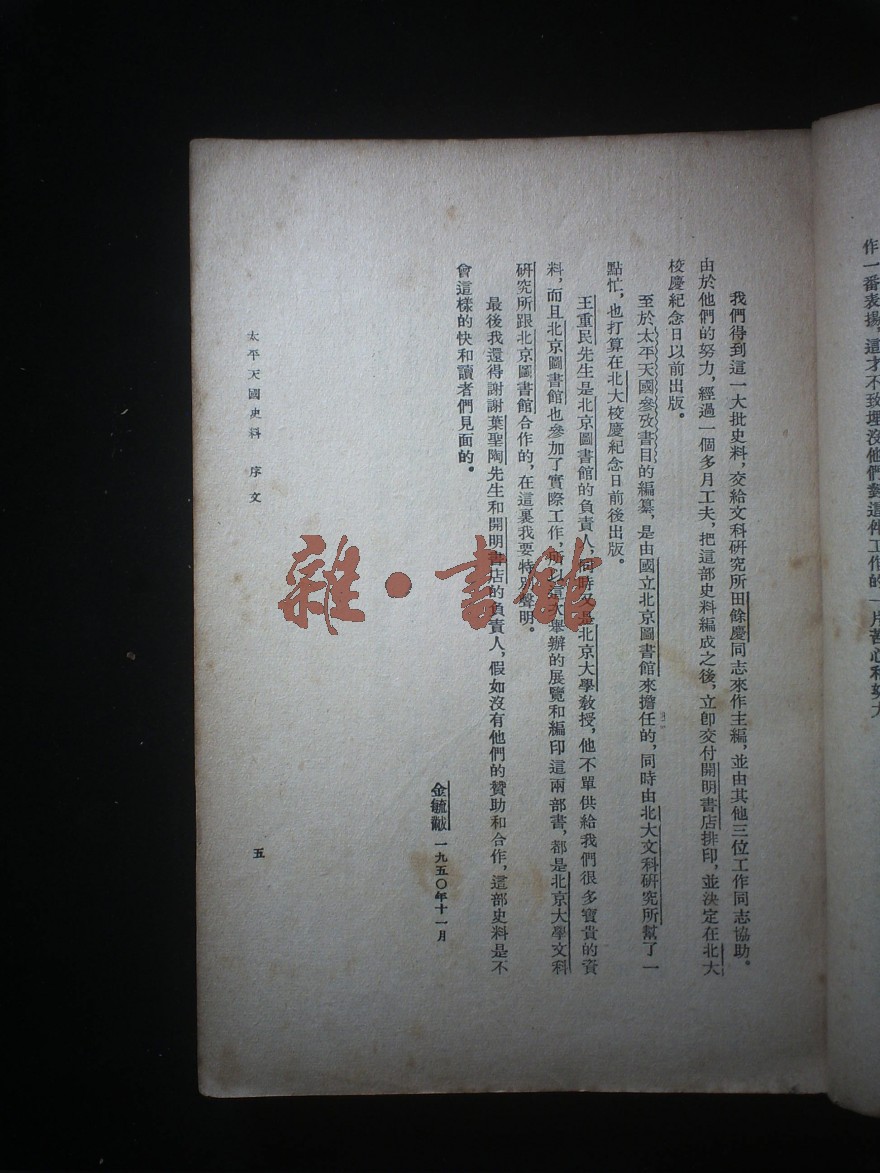 作一番表揚，這才不致埋沒他們對這件工作的一片苦心和努力
我們得到這一大批史料，交給文科研究所田餘慶同志來作主編，並由其他三位工作同志協助。
由於他們的努力，經過一個多月工夫，把這部史料編成之後，立卽交付開明書店排印，並決定在北大
校慶紀念日以前出版。
至於太平天國參攷書目的編纂，是由國立北京圖書館來擔任的，同時由北大文科研究所幫了一
點忙，也打算在北大校慶紀念日前後出版。
王重民先生是北京圖書館的負責人，同時又是北京大學敎授，他不單供給我們很多寶貴的資
料，而且北京圖書館也參加了實際工作，所以這次舉辦的展覽和編印這兩部書，都是北京大學文科
研究所跟北京圖書館合作的，在這裏我要特別聲明。
最後我還得謝謝葉聖陶先生和開明書店的負責人，假如沒有他們的贊助和合作，這部史料是不
會這樣的快和讀者們見面的。
金毓黻 一九五〇年十一月
太平天國史料 序文
五
雜·書館